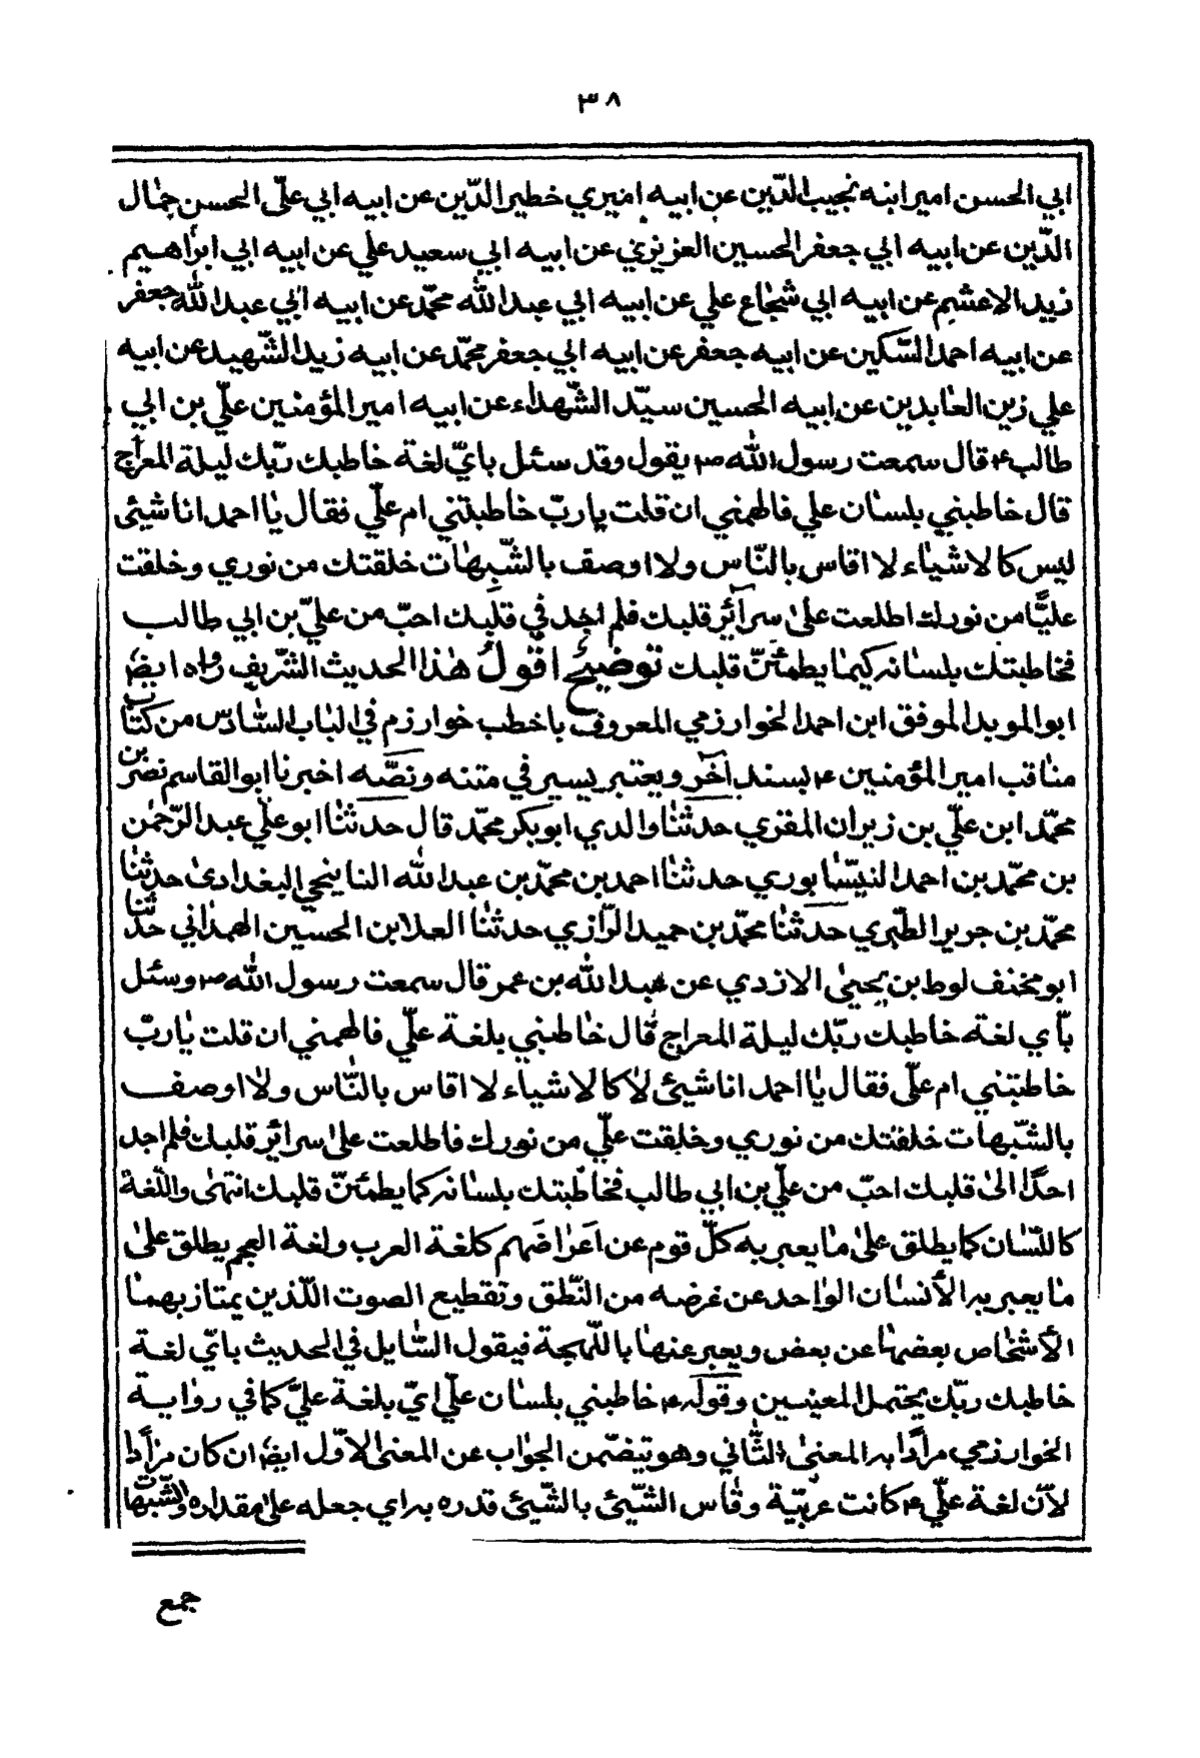 ٣٨
ابي الحسن اميرانبه نجيب الدّين عن ابيه اميري خطير الدّين عن ابيه ابي علّي الحسن جمال
الدّين عن ابيه ابي جعفر الحسين العزيزي عن ابيه ابي سعيد علي عن ابيه ابي ابراهيم
زيد الاعشم عن ابيه ابي شجاع علي عن ابيه ابي عبدالله محمّد عن ابيه ابي عبدالله جعفر
عن ابيه احمد السّكين عن ابيه جعفر عن ابيه ابي جعفر محمّد عن ابيه زيد الشّهيد عن ابيه
علي زين العابدين عن ابيه الحسين سيّد الشّهداء عن ابيه امير المؤمنين علّي بن ابي
طالب ع قال سمعت رسول الله ص يقول وقد سئل بايّ لغة خاطبك ربّك ليلة المعراج
قال خاطبني بلسان علي فالهمني ان قلت يا ربّ خاطبتني ام علّي فقال يا احمد انا شيئ
ليس كالاشياء لا اقاس بالنّاس ولا اوصف بالشّبهات خلقتك من نوري وخلقت
عليًّا من نورك اطلعت على سرآئر قلبك فلم اجد في قلبك احبّ من علّي بن ابي طالب
فخاطبتك بلسانه كيما يطمئنّ قلبك توضيح اقول هذا الحديث الشّريف رواه ايضا
ابو المويد الموفق ابن احمد الخوارزمي المعروف باخطب خوارزم في الباب السّادس من كتاب
مناقب امير المؤمنين ع بسند آخر ويعتبر يسير في متنه ونصّه اخبرنا ابو القاسم نصر بن
محمّد ابن علّي بن زيران المقري حدثنا والدي ابو بكر محمّد قال حدثنا ابو علّي عبد الرّحمن
بن محمّد بن احمد النيسّابوري حدثنا احمد بن محمّد بن عبدالله البغدادى حدثنا
محمّد بن جرير الطّبري حدثنا محمّد بن حميد الرّازي حدثنا العلا بن الحسين الهمداني حدّثنا
ابو مخنف لوط بن يحيى الازدي عن عبدالله بن عمر قال سمعت رسول الله ص وسئل
بآي لغة خاطبك ربّك ليلة المعراج قال خاطبني بلغة علّي فالهمني ان قلت يا ربّ
خاطبتني ام علّي فقال يا احمد انا شيئ لا كالاشياء لا اقاس بالنّاس ولا اوصف
بالشّبهات خلقتك من نوري وخلقت علّي من نورك فاطلعت على سرائر قلبك فلم اجد
احدًا الى قلبك احبّ من علّي بن ابي طالب فخاطبتك بلسانه كما يطمئنّ قلبك انتهى واللّغة
كاللّسان كما يطلق على ما يعبر به كلّ قوم عن اعراضهم كلغة العرب ولغة العجم يطلق على
ما يعبر به الأنسان الواحد عن غرضه من النّطق وتقطيع الصوت اللّذين يمتاز بهما
الأشخاص بعضها عن بعض ويعبر عنها باللّهجة فيقول السّايل في الحديث بايّ لغة
خاطبك ربّك يحتمل المعنيين وقوله ع خاطبني بلسان علّي ايّ بلغة عليّ كما في رواية
الخوارزمي مرادًا به المعنى الثّاني وهو تيضّمن الجواب عن المعنى الاوّل ايضا ان كان مرادًا
لأنّ لغة علّي ع كانت عربّية وقاس الشّيئ بالشّيئ قدره به اي جعله على مقداره والشّبهات
جمع